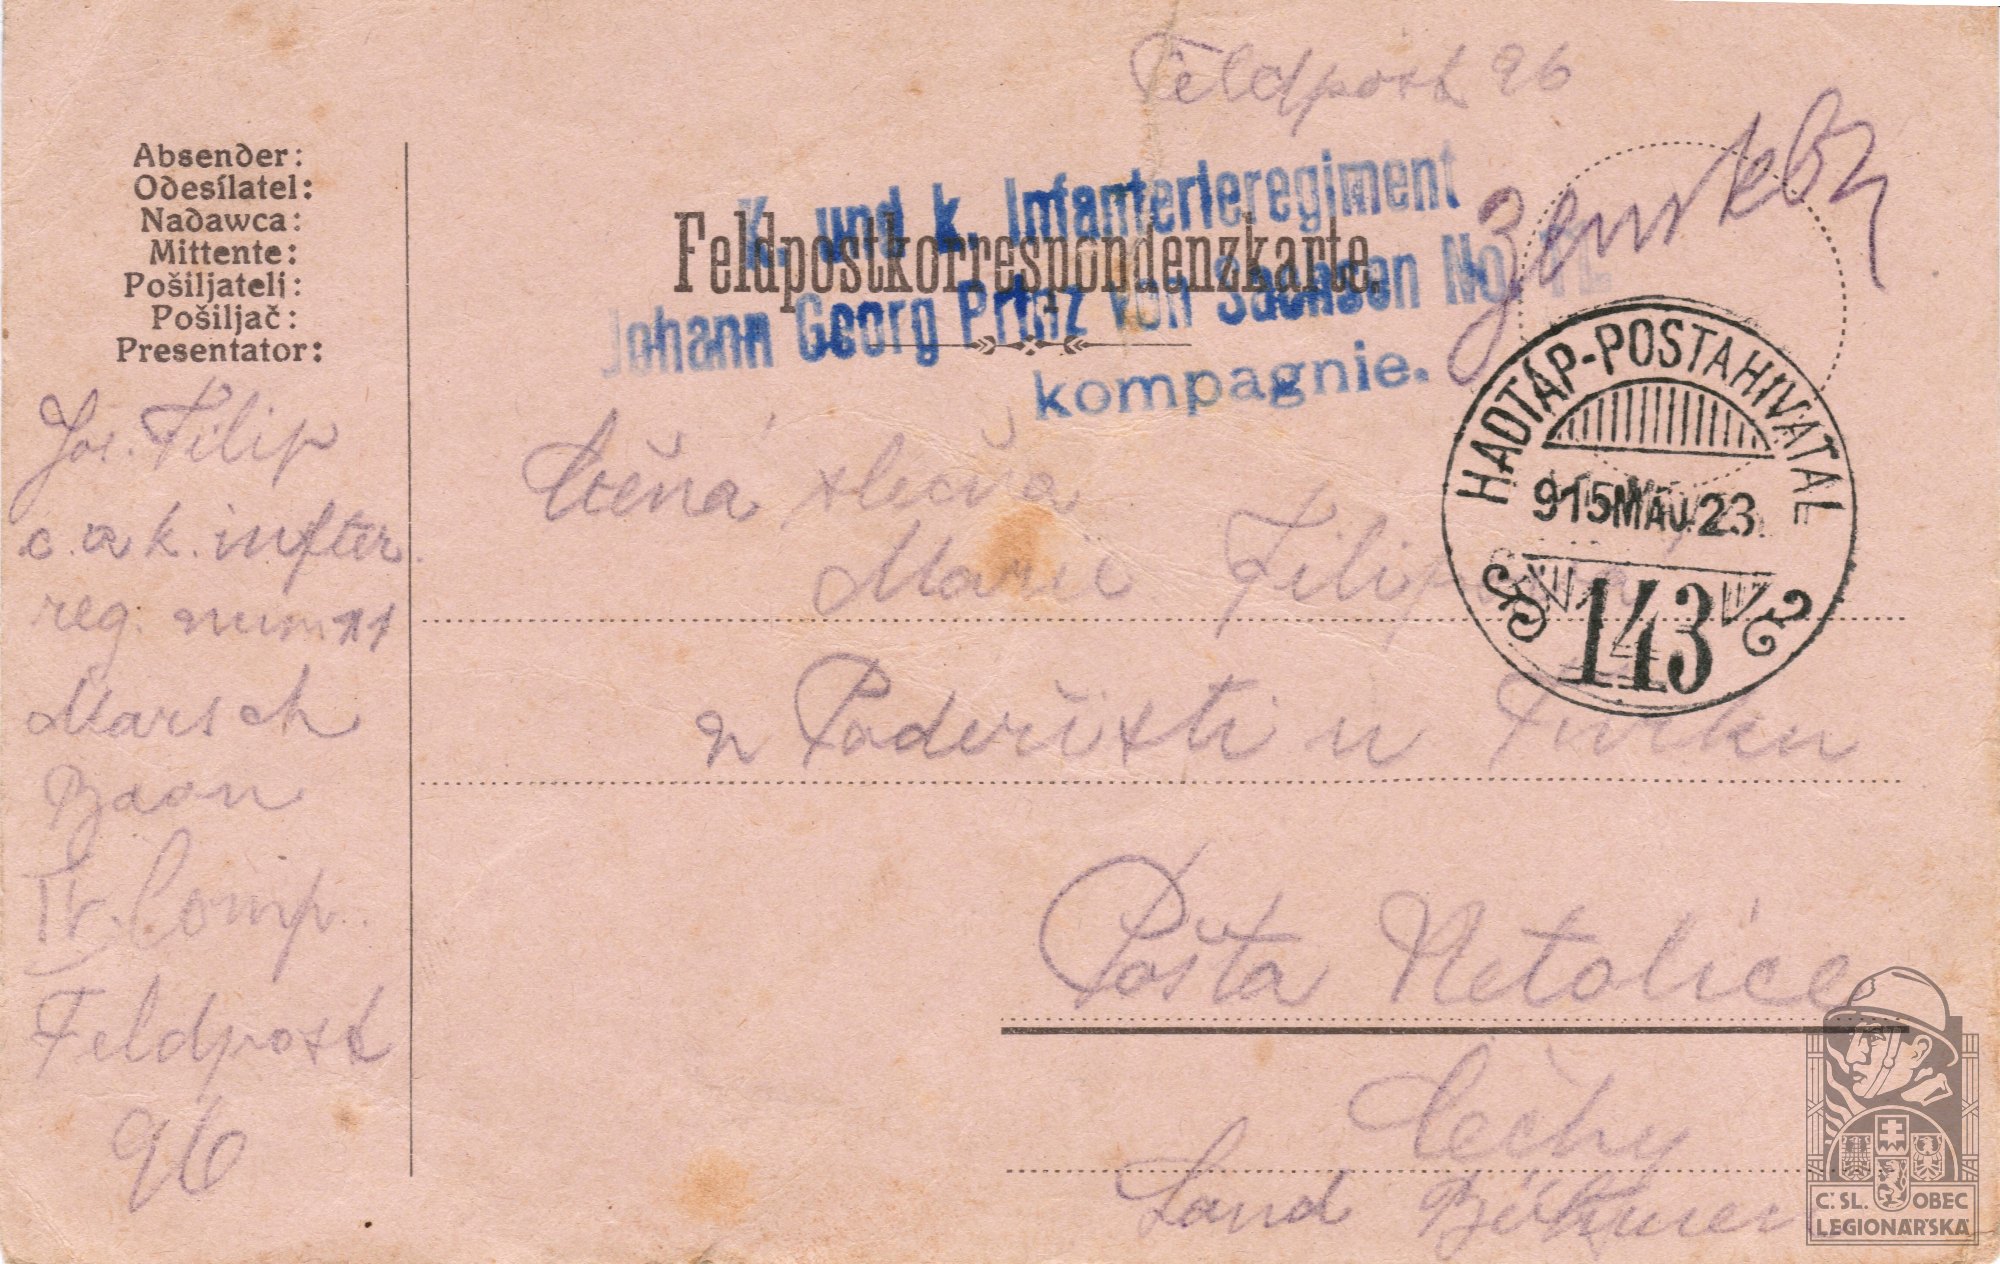 Feldpost 96
Absender:
Odesílatel:
Nadawca:
Mittente:
Pošiljatelj:
Pošiljač:
Presentator:
K. und k. Infanterieregiment
Feldpostkorrespondenzkarte.
Johann Georg Prinz von Sachsen No. 11.
kompagnie.
HADTÁP-POSTAHIVATAL
915 MÁJ. 23.
143
Jos. Filip
c. a k. infter.
reg. num 11
Marsch
Baon
IV. Comp.
Feldpost
96
Ctěná slečna
Marie Filipova
z Paderišti u Turku
Pošta Netolice
Čechy
Land Böhmen
Č. SL. OBEC
LEGIONÁŘSKÁ